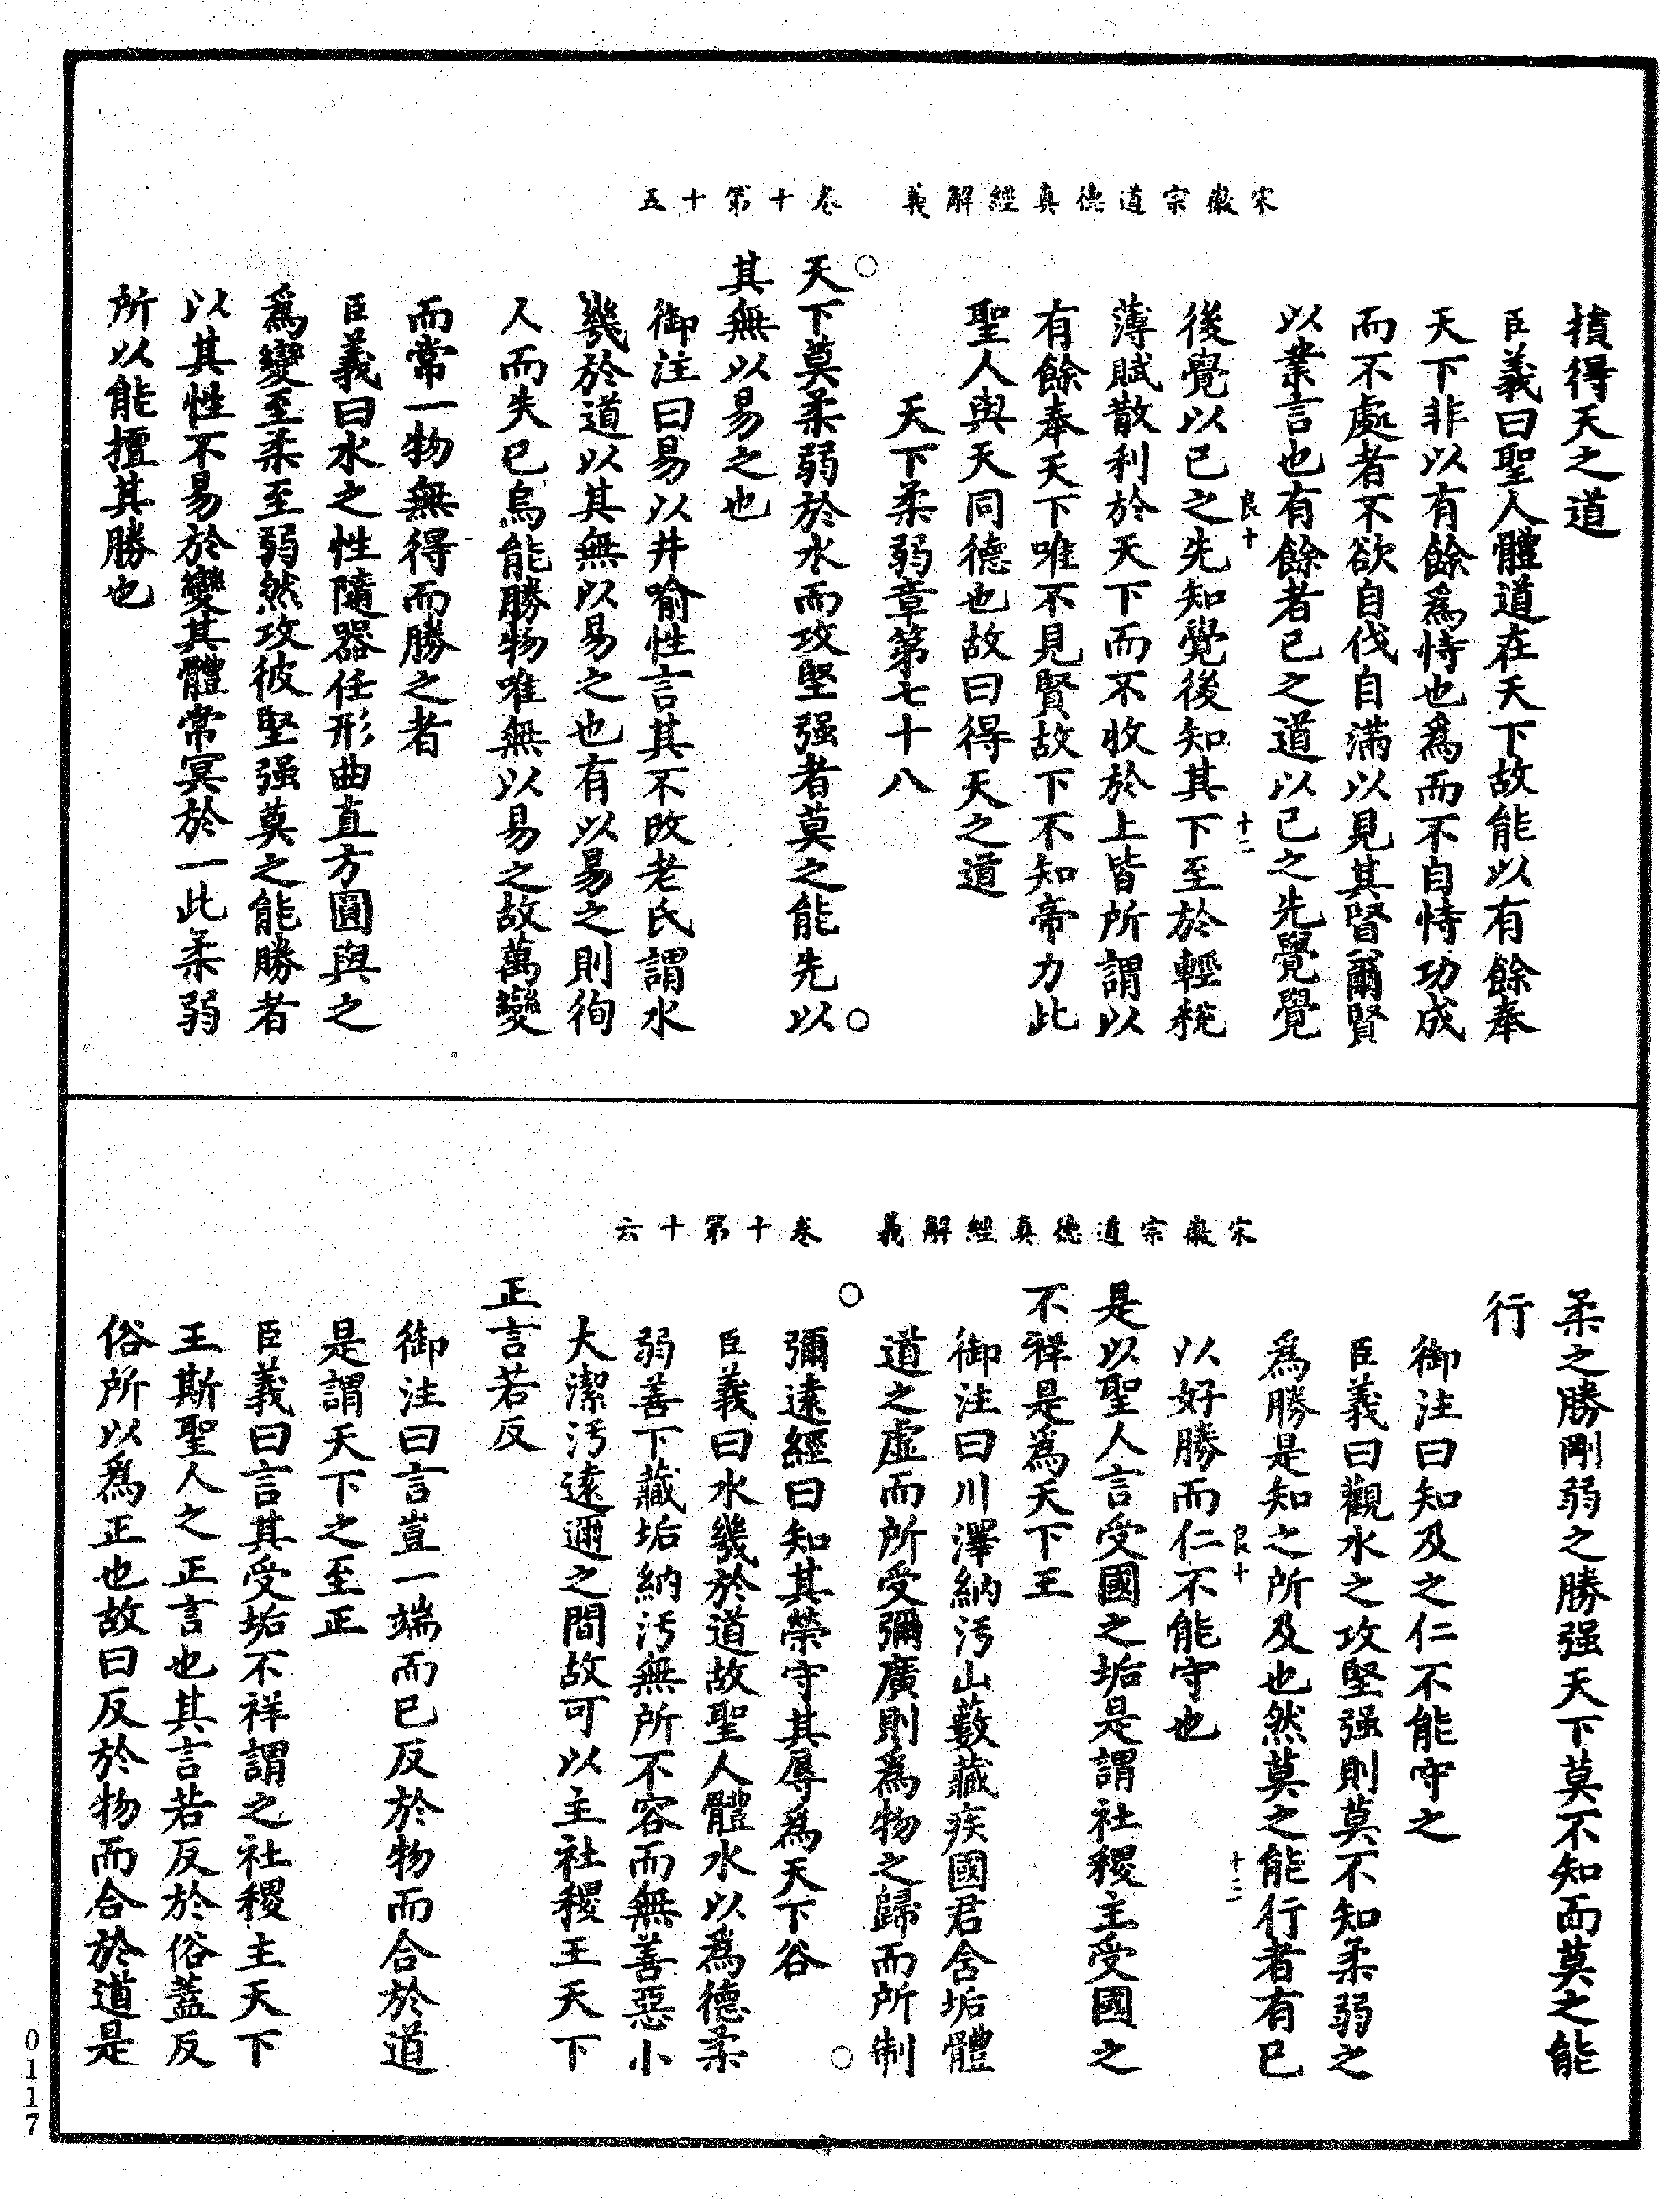 宋徽宗道德真經解義　卷十第十五
損得天之道
臣義曰聖人體道在天下故能以有餘奉
天下非以有餘爲恃也爲而不自恃功成
而不處者不欲自伐自滿以見其賢爾賢
以業言也有餘者已之道以已之先覺覺
良十
十二
後覺以已之先知覺後知其下至於輕稅
薄賦散利於天下而不收於上皆所謂以
有餘奉天下唯不見賢故下不知帝力此
聖人與天同德也故曰得天之道
天下柔弱章第七十八
天下莫柔弱於水而攻堅强者莫之能先以
其無以易之也
御注曰易以井喻性言其不改老氏謂水
幾於道以其無以易之也有以易之則徇
人而失已烏能勝物唯無以易之故萬變
而常一物無得而勝之者
臣義曰水之性隨器任形曲直方圓與之
爲變至柔至弱然攻彼堅强莫之能勝者
以其性不易於變其體常冥於一此柔弱
所以能擅其勝也
宋徽宗道德真經解義　卷十第十六
柔之勝剛弱之勝强天下莫不知而莫之能
行
御注曰知及之仁不能守之
臣義曰觀水之攻堅强則莫不知柔弱之
爲勝是知之所及也然莫之能行者有已
良十
十三
以好勝而仁不能守也
是以聖人言受國之垢是謂社稷主受國之
不祥是爲天下王
御注曰川澤納污山藪藏疾國君含垢體
道之虛而所受彌廣則爲物之歸而所制
彌遠經曰知其榮守其辱爲天下谷
臣義曰水幾於道故聖人體水以爲德柔
弱善下藏垢納污無所不容而無善惡小
大潔污遠邇之間故可以主社稷王天下
正言若反
御注曰言豈一端而已反於物而合於道
是謂天下之至正
臣義曰言其受垢不祥謂之社稷主天下
王斯聖人之正言也其言若反於俗蓋反
俗所以爲正也故曰反於物而合於道是
0117